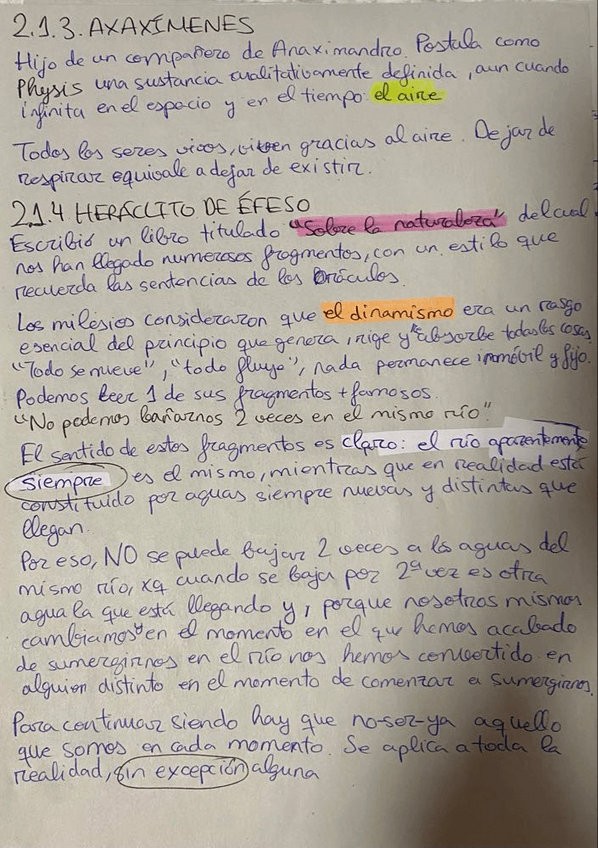 2.1.3. AXAXÍMENES
Hijo de un compañero de Anaximandro. Postula como
Physis una sustancia cualitativamente definida, aun cuando
infinita en el espacio y en el tiempo: el aire
Todos los seres vivos, viven gracias al aire. Dejar de
respirar equivale a dejar de existir.
2.1.4 HERÁCLITO DE ÉFESO
Escribió un libro titulado "Sobre la naturaleza" del cual
nos han llegado numerosos fragmentos, con un estilo que
recuerda las sentencias de los Oráculos.
Los milesios consideraron que el dinamismo era un rasgo
esencial del principio que genera, rige y absorbe todas las cosas
"Todo se mueve", "todo fluye", nada permanece inmóvil y fijo.
Podemos leer 1 de sus fragmentos + famosos.
"No podemos bañarnos 2 veces en el mismo río"
El sentido de estos fragmentos es claro: el río aparentemente
siempre es el mismo, mientras que en realidad está
constituido por aguas siempre nuevas y distintas que
llegan.
Por eso, NO se puede bajar 2 veces a las aguas del
mismo río, xq cuando se baja por 2ª vez es otra
agua la que está llegando y, porque nosotros mismos
cambiamos en el momento en el qu hemos acabado
de sumergirnos en el río nos hemos convertido en
alguien distinto en el momento de comenzar a sumergirnos.
Para continuar siendo hay que no-ser-ya aquello
que somos en cada momento. Se aplica a toda la
realidad, sin excepción alguna